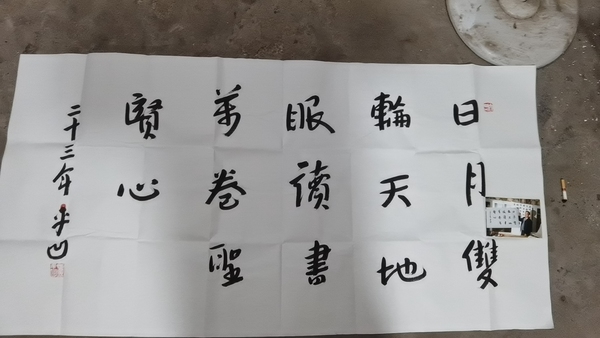 日月雙
輪天地
眼讀書
萬卷聖
賢心
二十三年 平凹